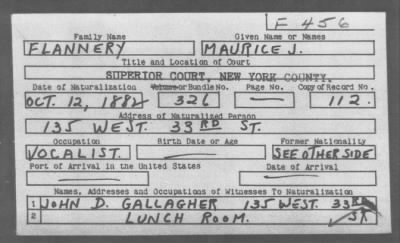 F 456
Family Name Given Name or Names
FLANNERY MAURICE J.
Title and Location of Court
SUPERIOR COURT, NEW YORK COUNTY.
Date of Naturalization Volume or Bundle No. Page No. Copy of Record No.
OCT. 12, 1882 326 — 112.
Address of Naturalized Person
135 WEST. 33RD ST.
Occupation Birth Date or Age Former Nationality
VOCALIST. — SEE OTHER SIDE
Port of Arrival in the United States Date of Arrival
— —
Names, Addresses and Occupations of Witnesses To Naturalization
1 JOHN D. GALLAGHER 135 WEST. 33RD
2 LUNCH ROOM. ST